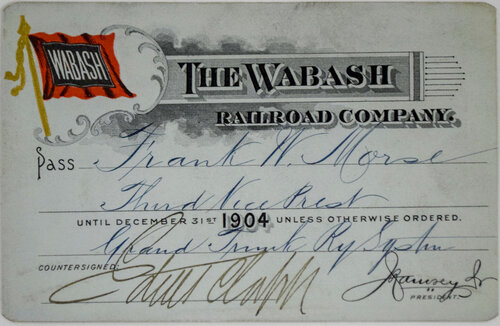 WABASH
THE WABASH
RAILROAD COMPANY.
Pass Frank W. Morse
Third Vice Prest
UNTIL DECEMBER 31ST 1904 UNLESS OTHERWISE ORDERED.
Grand Trunk Ry System
COUNTERSIGNED
J Ramsey Jr
PRESIDENT.